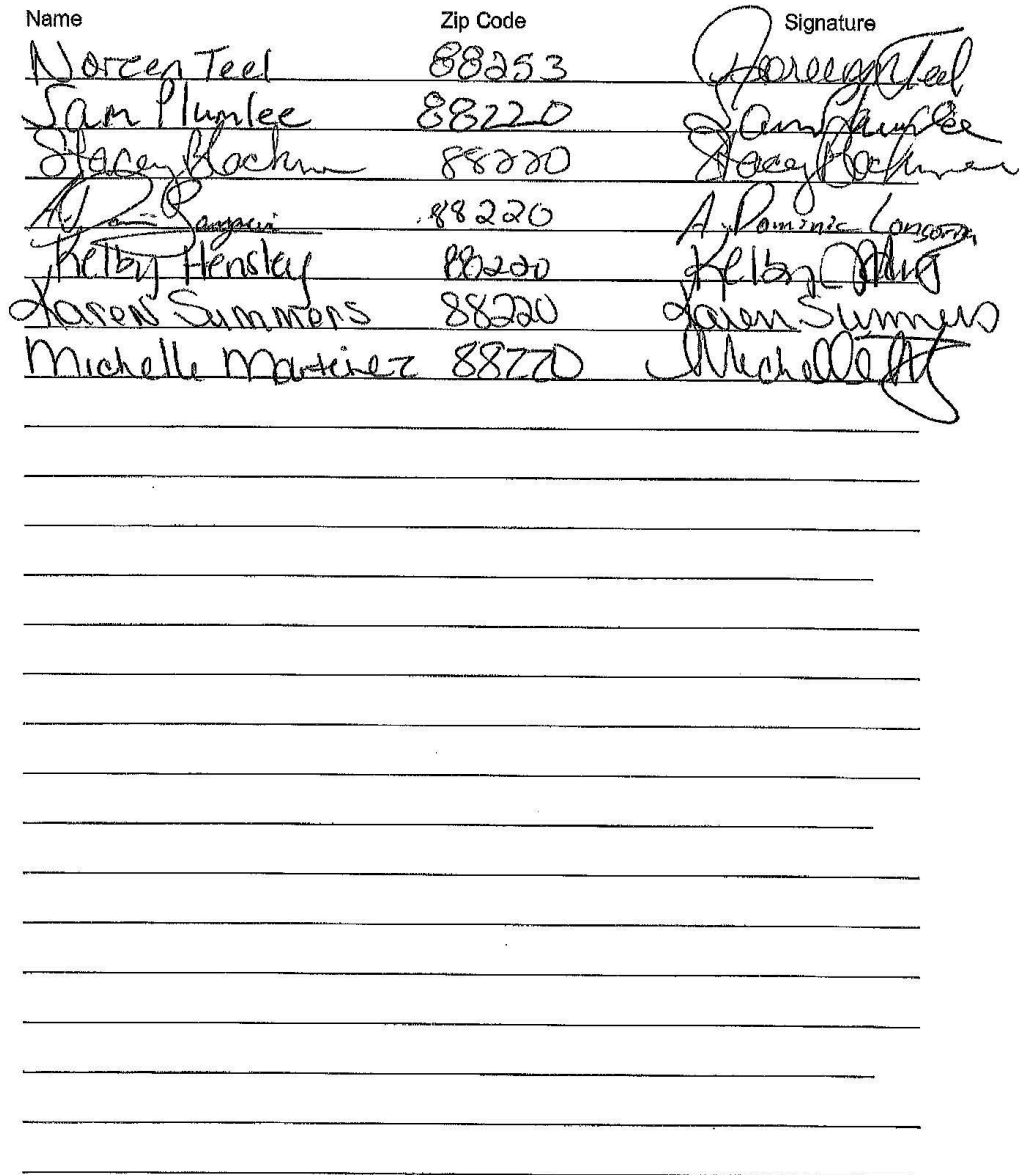 Name Zip Code Signature
Noreen Teel 88253 Noreen Teel
Sam Plumlee 88220 Sam Plumlee
Stacey 88220 Stacey
88220 A. Dominic
Kelby Hensley 88220 Kelby
Karen Summers 88220 Karen Summers
Michelle Martinez 88220 Michelle M